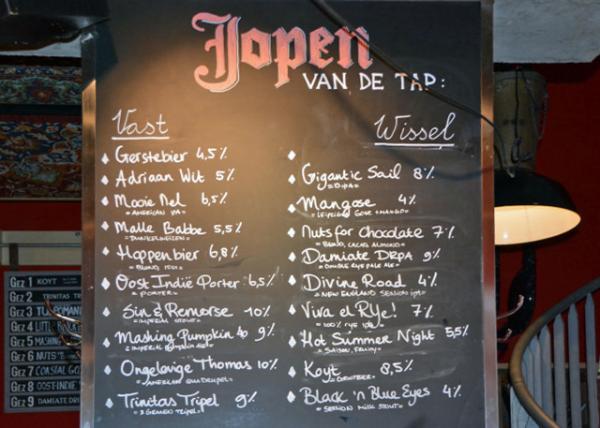 Jopen
VAN DE TAP:
Vast
Gerstebier 4,5%
Adriaan Wit 5%
Mooie Nel 6,5%
= AMERICAN IPA =
Malle Babbe 5,5%
= DUNKELWEIZEN =
Hoppenbier 6,8%
Oost Indië Porter 6,5%
= PORTER =
Sin & Remorse 10%
= IMPERIAL STOUT =
Mashing Pumpkin 9%
Ongelovige Thomas 10%
= AMERICAN QUADRUPEL =
Trinitas Tripel 9%
= 3 GRANEN TRIPEL =
Wissel
Gigantic Sail 8%
Mangose 4%
= LEIPZIGER GOSE + MANGO =
Nuts for Chocolate 7%
Damiate DRPA 9%
= DOUBLE RYE PALE ALE =
Divine Road 4%
= NEW ENGLAND SESSION IPA =
Viva el RYE! 7%
= 100% RYE IPA =
Hot Summer Night 5,5%
= SAISON, FRUITY =
Koyt 8,5%
= GRUITBIER =
Black 'n Blue Eyes 4%
= SESSION MILK STOUT =
Grz 1 KOYT
Grz 2 TRINITAS
Grz 3
Grz 4
Grz 5 MASHIN
Grz 6 NUTS
Grz 7
Grz 8 OOST-INDIE
Grz 9 DAMIATE DR